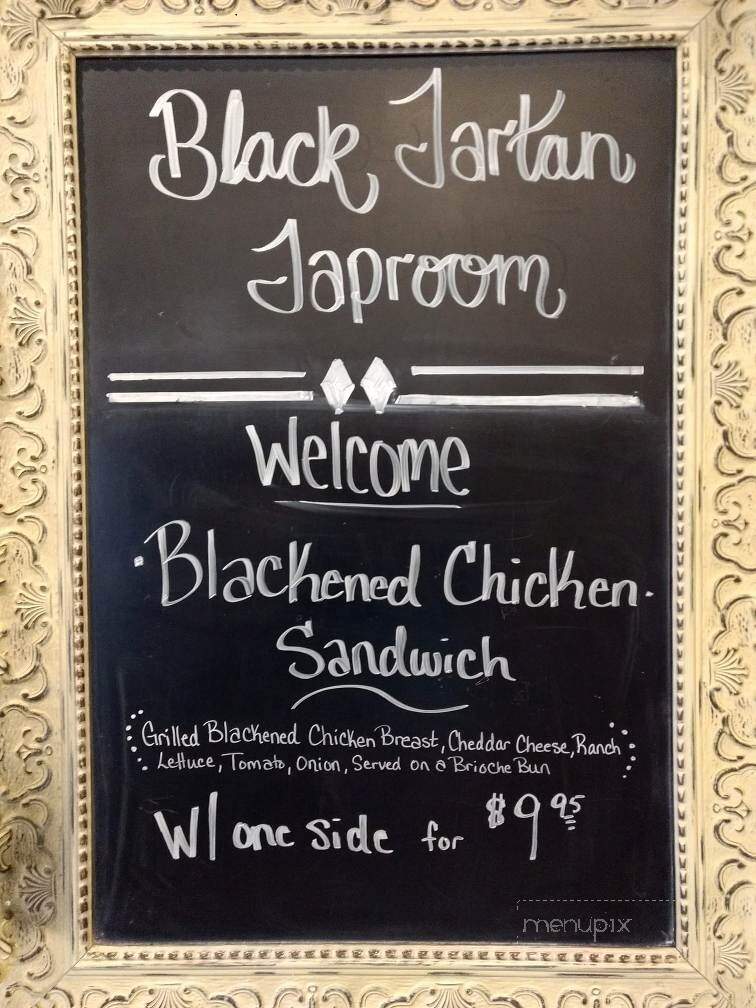 Black Tartan
Taproom
Welcome
·Blackened Chicken·
Sandwich
Grilled Blackened Chicken Breast, Cheddar Cheese, Ranch
Lettuce, Tomato, Onion, Served on a Brioche Bun
W/ one side for $9.95
menupix